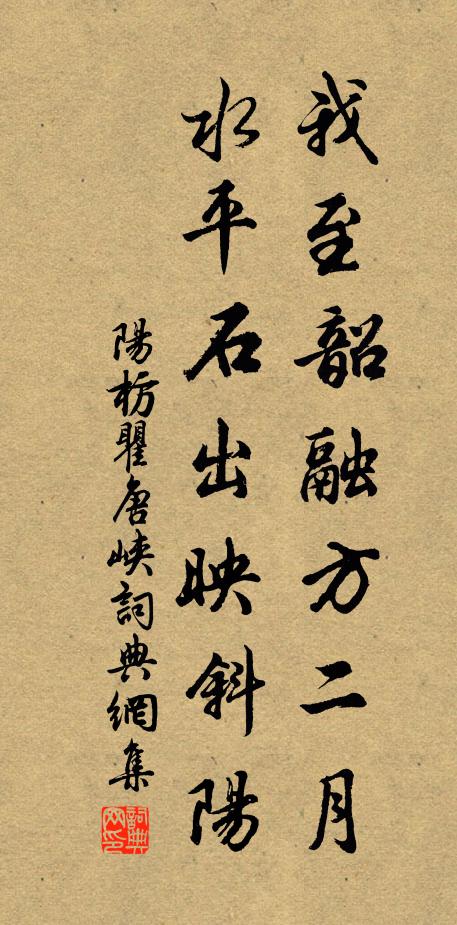 我至韶融方二月
水平石出映斜陽
陽枋瞿唐峽詞典網集
詞典网印